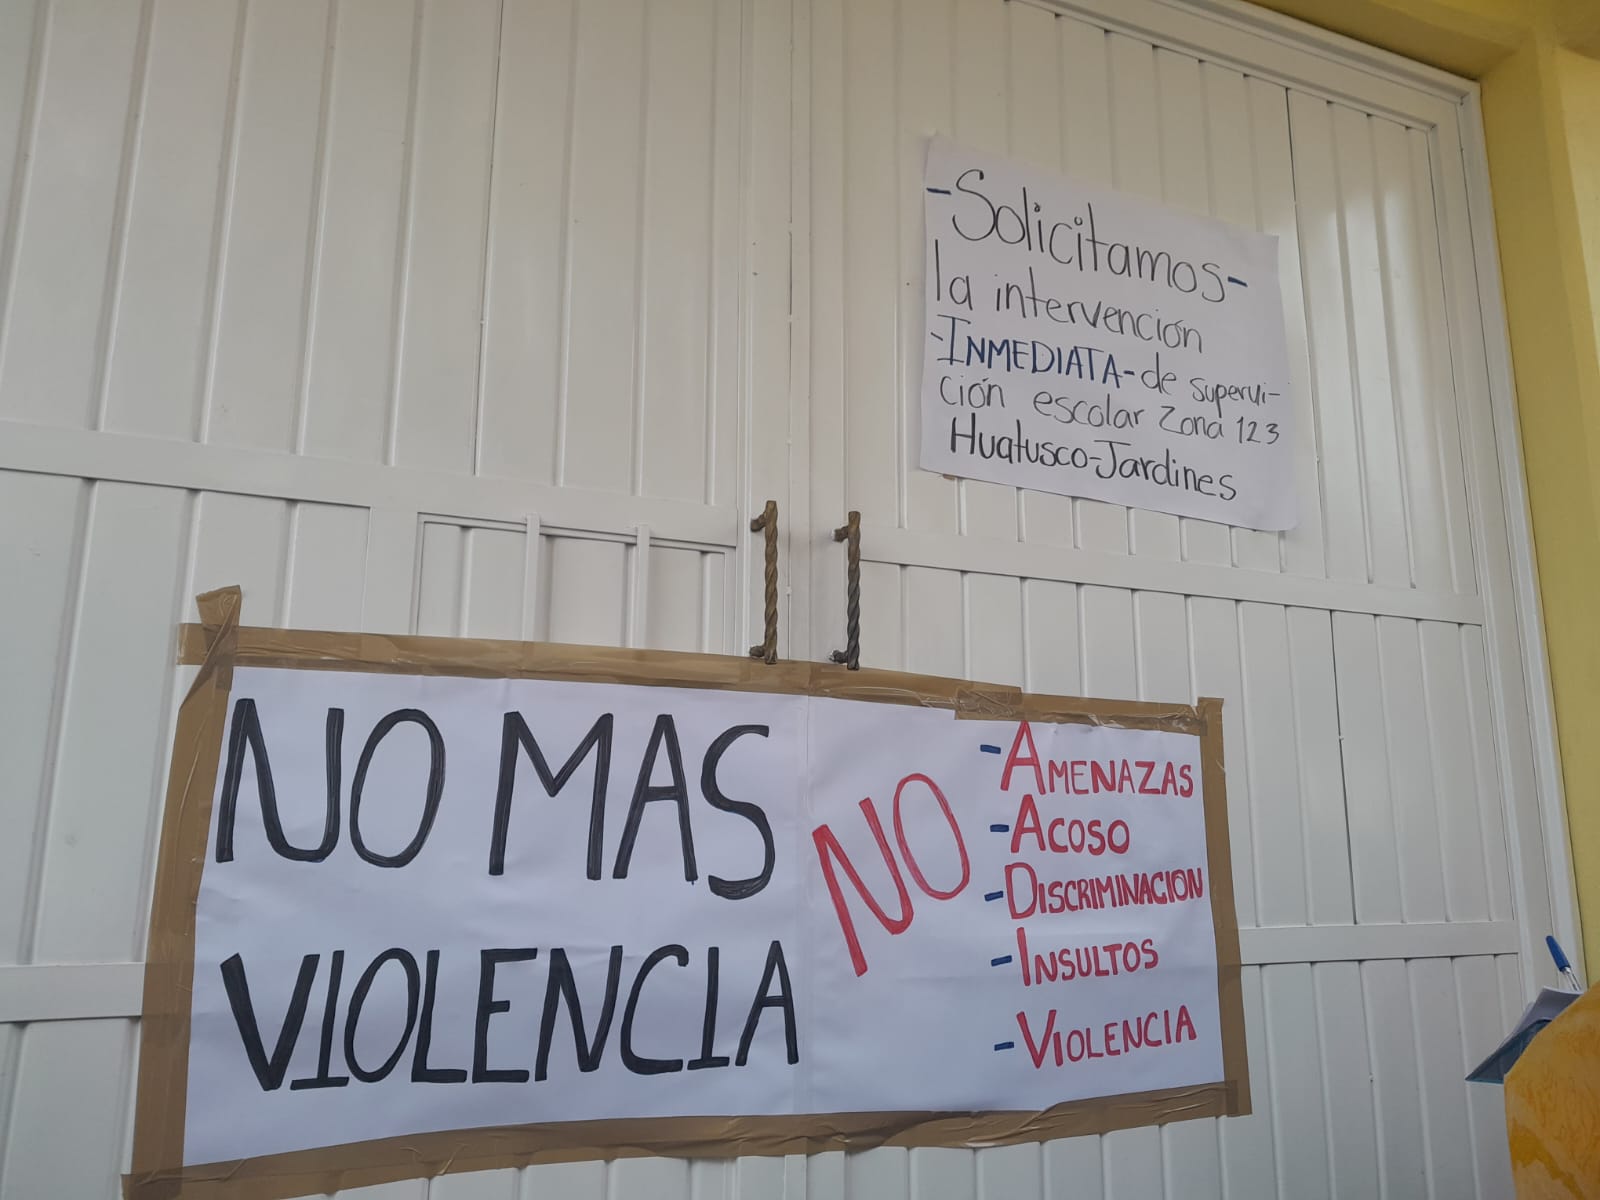 -Solicitamos-
la intervención
-INMEDIATA- de supervi-
ción escolar Zona 123
Huatusco-Jardines
NO MAS
VIOLENCIA
NO
-AMENAZAS
-ACOSO
-DISCRIMINACIÓN
-INSULTOS
-VIOLENCIA